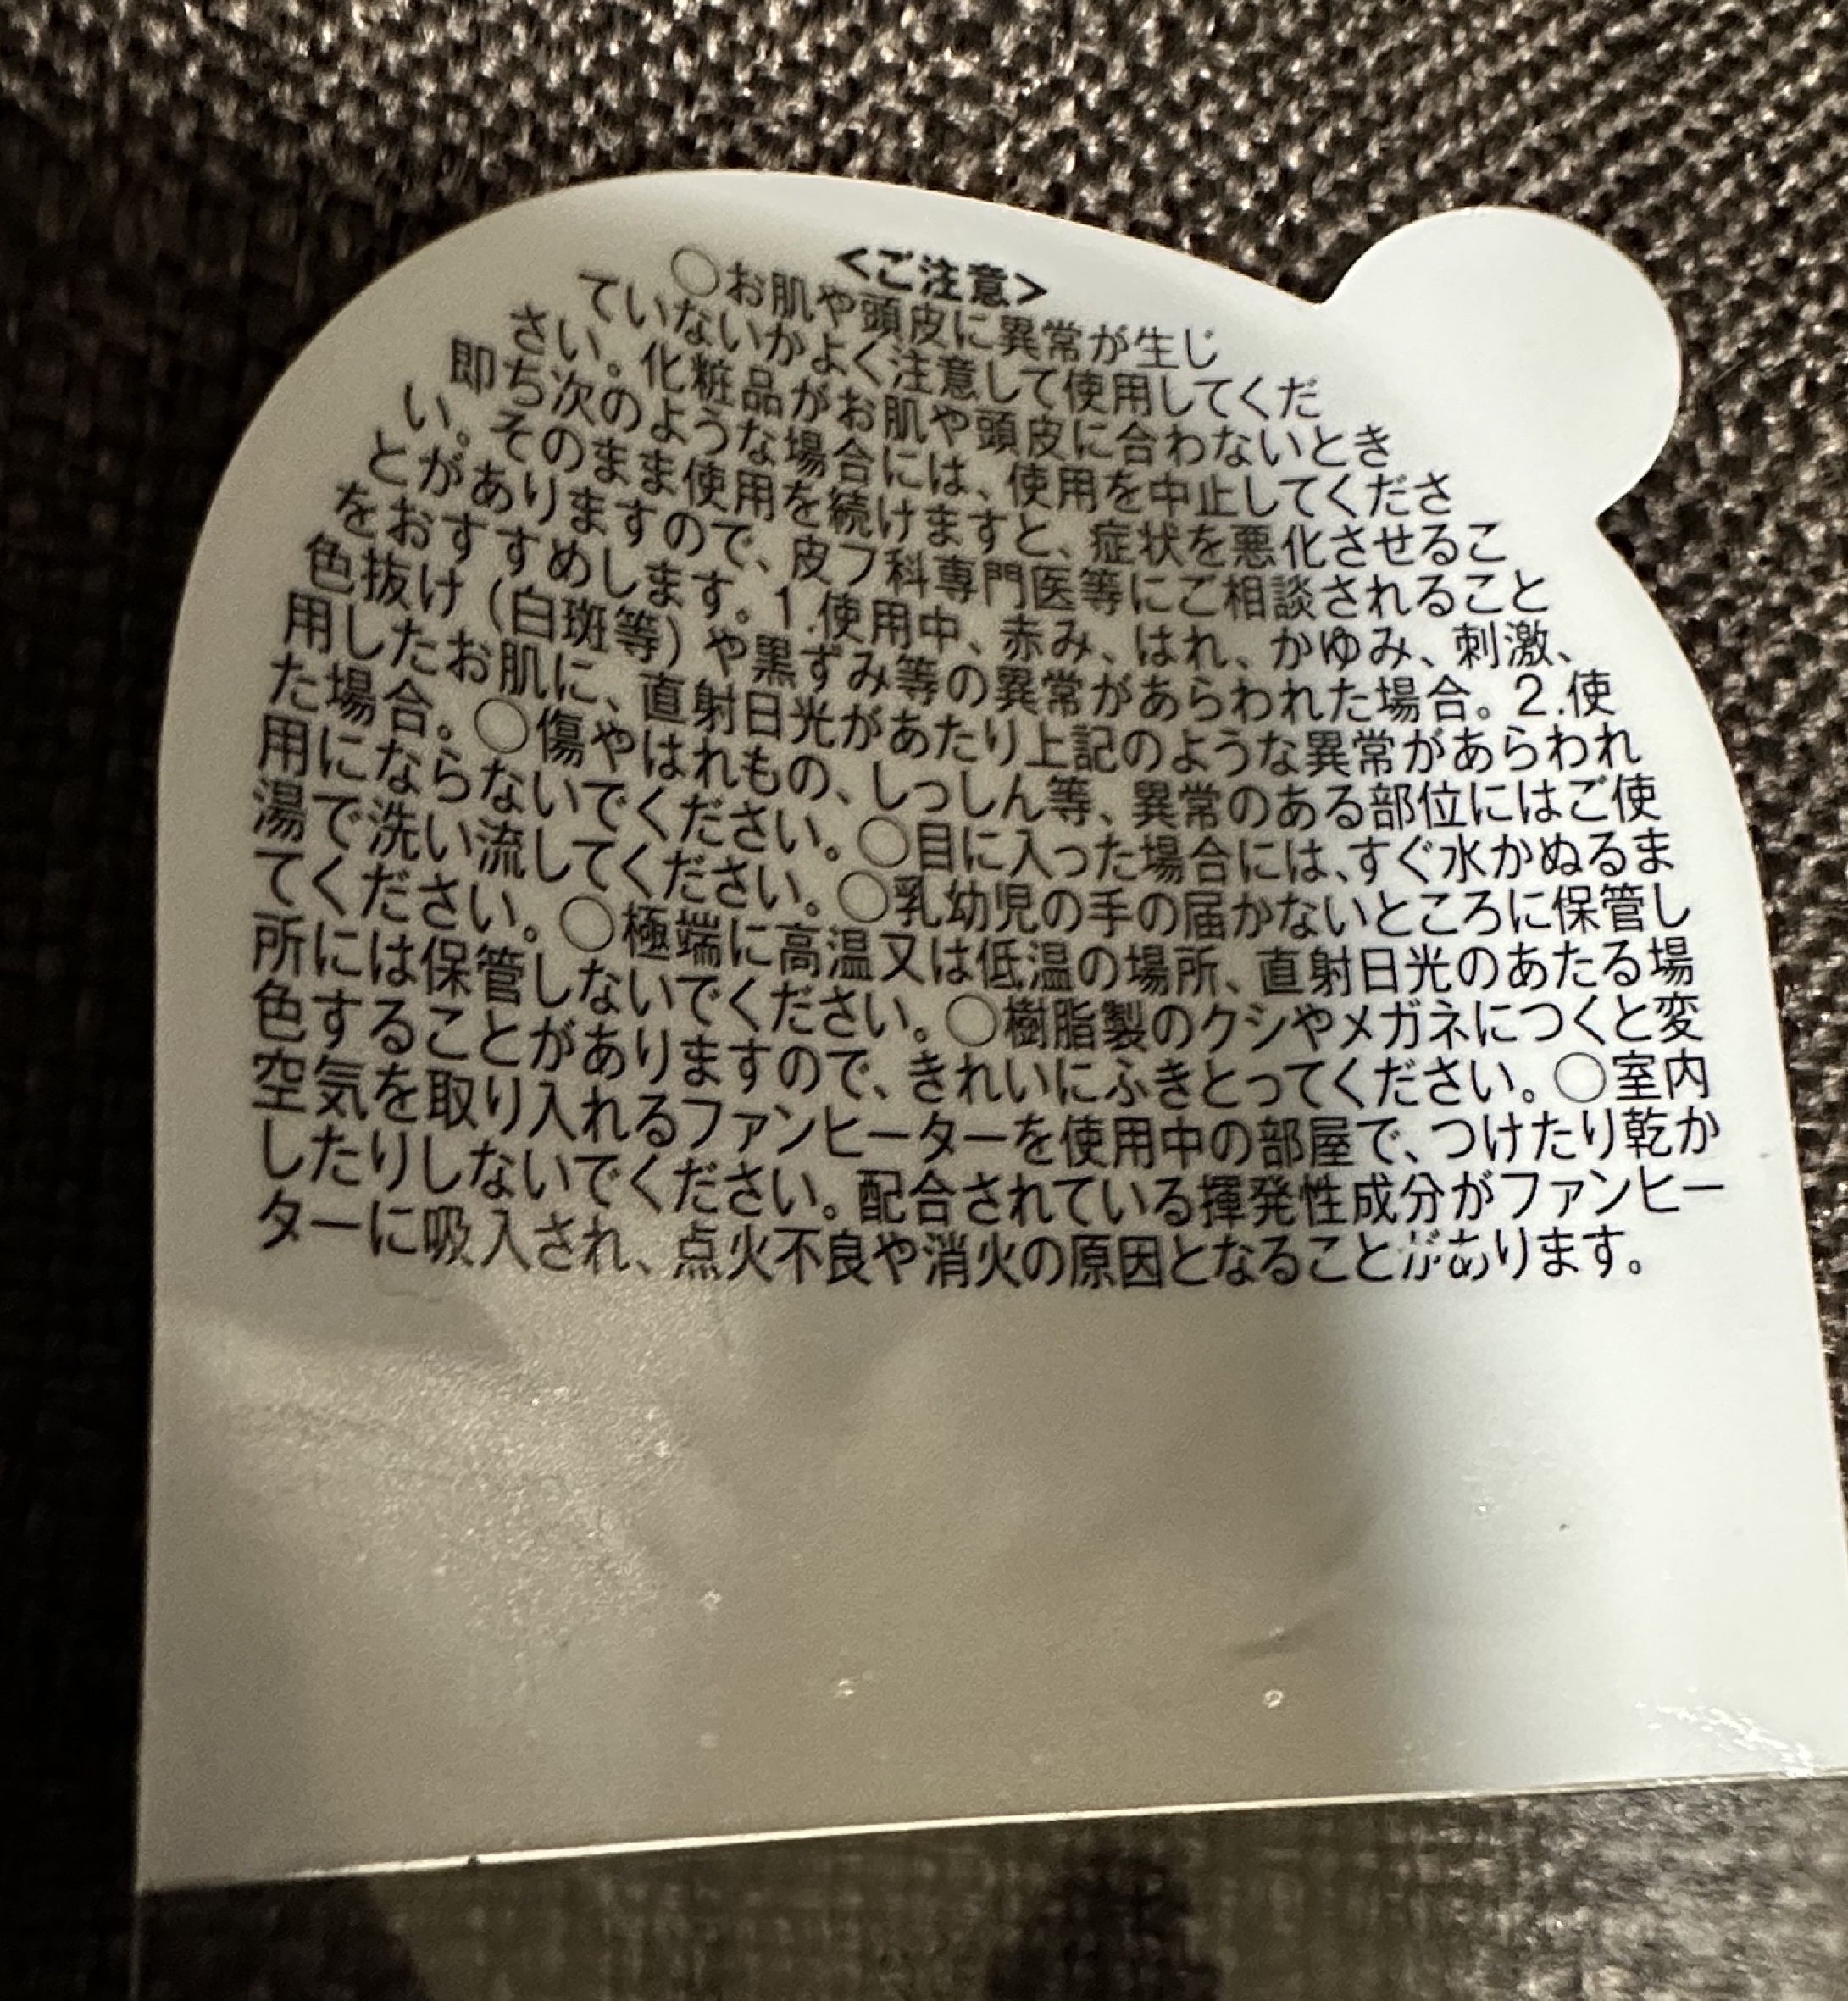 <ご注意>
○お肌や頭皮に異常が生じ
ていないかよく注意して使用してくだ
さい。化粧品がお肌や頭皮に合わないとき
即ち次のような場合には、使用を中止してくださ
い。そのまま使用を続けますと、症状を悪化させるこ
とがありますので、皮フ科専門医等にご相談されること
をおすすめします。1.使用中、赤み、はれ、かゆみ、刺激、
色抜け（白斑等）や黒ずみ等の異常があらわれた場合。2.使
用したお肌に、直射日光があたり上記のような異常があらわれ
た場合。○傷やはれもの、しっしん等、異常のある部位にはご使
用にならないでください。○目に入った場合には、すぐ水かぬるま
湯で洗い流してください。○乳幼児の手の届かないところに保管し
てください。○極端に高温又は低温の場所、直射日光のあたる場
所には保管しないでください。○樹脂製のクシやメガネにつくと変
色することがありますので、きれいにふきとってください。○室内
空気を取り入れるファンヒーターを使用中の部屋で、つけたり乾か
したりしないでください。配合されている揮発性成分がファンヒー
ターに吸入され、点火不良や消火の原因となることがあります。